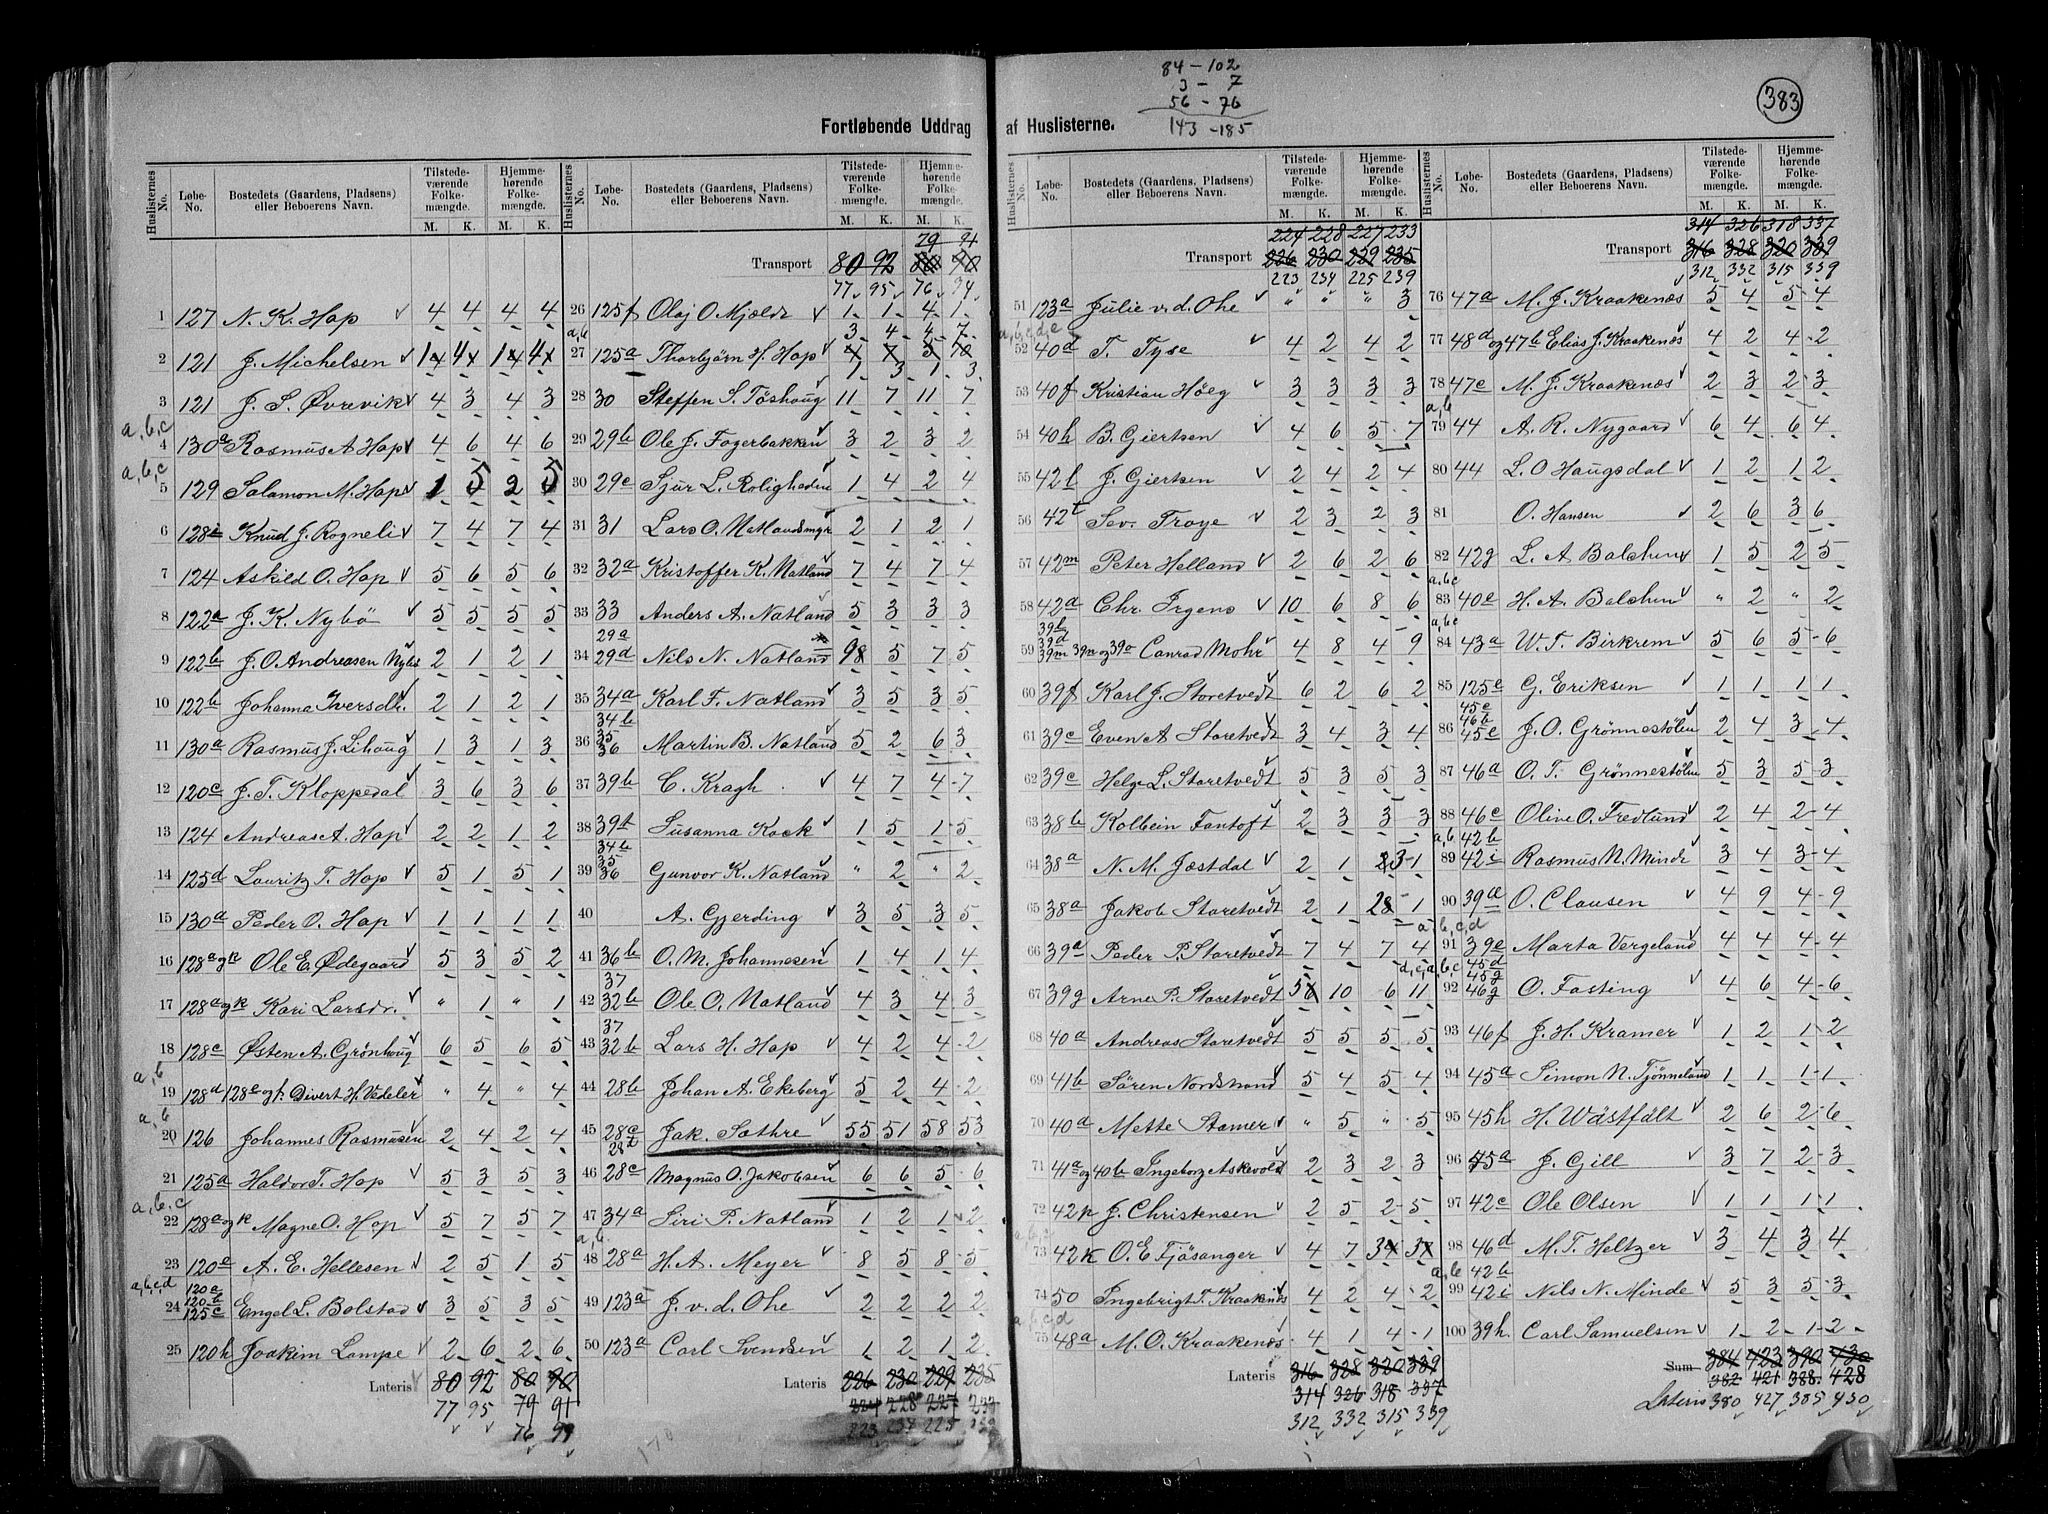 84 - 102
3 - 7
56 - 76
143 - 185
383
Fortløbende Uddrag af Huslisterne.
Huslisternes No. Løbe-No. Bostedets (Gaardens, Pladsens) eller Beboerens Navn. Tilstedeværende Folkemængde. M. K. Hjemmehørende Folkemængde. M. K.
1 127 N. K. Hop 4 4 4 4
2 121 J. Michelsen
3 121 J. S. Øvrevik 4 3 4 3
a, b, c
4 130a Rasmus A Hop 4 6 4 6
a, b, c
5 129 Salamon M. Hop 1 5 2 5
6 128i Knud J. Rogneli 7 4 7 4
7 124 Askild O. Hop 5 6 5 6
8 122a J. K. Nybö 5 5 5 5
9 122b J. O. Andreasen Nybö 2 1 2 1
10 122b Johanna Iversdr. 2 1 2 1
11 130a Rasmus J. Lihoug 1 3 1 3
12 120c J. T. Kloppedal 3 6 3 6
13 124 Andreas A. Hop 2 2 1 2
14 125d Lauritz T. Hop 5 1 5 1
15 130a Peder O. Hop 1 1 1 1
16 128a og k Ole E. Ødegaard 5 3 5 2
17 128a og k Kari Larsdr. " 1 " 1
18 128c Østen A. Grönhoug 6 5 6 5
a, b
19 128d 128e og f. Divert H. Vedeler " 4 " 4
a, b
20 126 Johannes Rasmusen 2 4 2 4
21 125a Haldor T. Hop 5 3 5 3
a, b, c
22 128a og k Magne O. Hop 5 7 5 7
23 120a A. E. Hellesen 2 5 1 5
a, b, c, d
24 120a 120b 125c Engel L. Bolstad 3 5 3 5
25 120h Joakim Lampe 2 6 2 6
Lateris 80 92 80 90
77 95 79 91
76
Huslisternes No. Løbe-No. Bostedets (Gaardens, Pladsens) eller Beboerens Navn. Tilstedeværende Folkemængde. M. K. Hjemmehørende Folkemængde. M. K.
79 91
Transport 80 92 80 90
77 95 76 94
26 125f Olaj O. Mjeldt 1 1 4 1
a, b 3 4 4 7
27 125a Thorbjørn H. Hop
1 3 1 3
28 30 Steffen S. Töshoug 11 7 11 7
29 29b Ole J. Fagerbakken 3 2 3 2
30 29c Sjur L. Roligheden 1 4 2 4
31 31 Lars O. Natlandsmyr 2 1 2 1
32 32a Kristoffer K. Natland 7 4 7 4
33 33 Anders A. Natland 5 3 3 3
29a
34 29d Nils N. Natland 98 5 7 5
35 34a Karl F. Natland 3 5 3 5
36 34b 35 36 Martin B. Natland 5 2 6 3
37 39b C. Kragh 4 7 4 7
38 39t Susanna Kock 1 5 1 5
39 34b 35 36 Gunvor K. Natland " 2 " 2
40 A. Gjerding 3 5 3 5
41 36b O. M. Johannesen 1 4 1 4
42 37 32b Ole O. Natland 4 3 4 3
43 37 32b Lars H. Hop 4 2 4 2
44 28b Johan A. Ekeberg 5 2 4 2
45 28c 28d Jak. Sæthre 55 51 58 53
46 28c Magnus O. Jakobsen 6 6 5 6
47 34a Siri P. Natland 1 2 1 2
a, b.
48 28a H. A. Meyer 8 5 8 5
49 123a J. v. d. Ohe 2 2 2 2
50 123a Carl Svendsen 1 2 1 2
Lateris 226 230 229 235
224 228 227 233
Huslisternes No. Løbe-No. Bostedets (Gaardens, Pladsens) eller Beboerens Navn. Tilstedeværende Folkemængde. M. K. Hjemmehørende Folkemængde. M. K.
224 228 227 233
Transport 226 230 229 235
223 234 225 239
51 123a Julie v. d. Ohe " " " 3
a, b, c, d, e
52 40d T. Tyse 4 2 4 2
53 40f Kristian Höeg 3 3 3 3
54 40h B. Giertsen 4 6 5 7
55 42b J. Giertsen 2 4 2 4
56 42t Sev. Troye 2 3 2 3
57 42m Peter Helland 2 6 2 6
58 42a Chr. Irgens 10 6 8 6
59 39b 39d 39m 39n og 39o Conrad Mohr 4 8 4 9
60 39f Karl J. Storetvedt 6 2 6 2
61 39c Even A Storetvedt 3 4 3 4
62 39c Helge L. Storetvedt 5 3 5 3
63 38b Kolbein Fantoft 2 3 3 3
64 38a N. M. Jæstdal 2 1 23 1
65 38a Jakob Storetvedt 2 1 28 1
66 39a Peder P. Storetvedt 7 4 7 4
67 39g Arne P. Storetvedt 56 10 6 11
68 40a Andreas Storetvedt 5 5 5 5
69 41b Sören Nordstrand 5 4 5 4
70 40a Mette Stamer " 5 " 5
71 41a og 40b Ingeborg Askevold 2 3 2 3
72 42k J. Christensen 2 5 2 5
73 42k O. E. Fjösanger 4 7
74 50 Ingebrigt T. Kraakenæs 4 2 4 2
a, b, c, d
75 48a M. O. Kraakenæs 4 1 4 1
Lateris 316 328 320 339
314 326 318 337
312 332 315 339
Huslisternes No. Løbe-No. Bostedets (Gaardens, Pladsens) eller Beboerens Navn. Tilstedeværende Folkemængde. M. K. Hjemmehørende Folkemængde. M. K.
314 326 318 337
Transport 316 328 320 339
312 332 315 339
76 47a M. J. Kraakenæs 5 4 5 4
77 48d og 47b Elias J. Kraakenæs 4 2 4 2
78 47c M. J. Kraakenæs 2 3 2 3
a, b
79 44 A. R. Nygaard 6 4 6 4
80 44 L. O Haugsdal 1 2 1 2
81 O. Hansen 2 6 3 6
82 42g L. A Balchen 1 5 2 5
a, b, c
83 40e H. A. Balchen " 2 " 2
a, b, c
84 43a W. T. Birkrem 5 6 5 6
85 125e G. Eriksen 1 1 1 1
86 45c 46b 45e J. O. Grönnestölen 2 4 3 4
87 46a O. T. Grönnestölen 5 3 5 3
88 46c Oline O. Fredlund 2 4 2 4
a, b
89 42b 42i Rasmus N. Minde 3 4 3 4
90 39d O. Clausen 4 9 4 9
a, b, c, d
91 39e Marta Vergeland 4 4 4 4
d, c, a, b, c
92 45d 45g 46g O. Fasting 4 6 4 6
93 46f J. H. Kramer 1 2 1 2
94 45a Simon N. Tjönneland 1 1 1 1
95 45h H. Wästfält 2 6 2 6
96 45a J. Gill 3 7 2 3
97 42c Ole Olsen 1 1 1 1
98 46d M. T. Heltzer 3 4 3 4
a, b
99 42b 42i Nils N. Minde 5 3 5 3
100 39h. Carl Samuelsen 1 2 1 2
Sum 384 423 390 430
382 421 388 428
Lateris 380 427 385 430